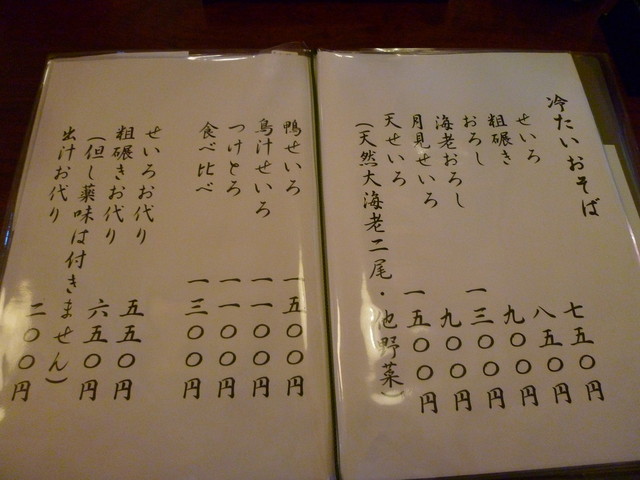 冷たいおそば
せいろ 七五〇円
粗碾き 八五〇円
おろし 九〇〇円
海老おろし 一三〇〇円
月見せいろ 九〇〇円
天せいろ 一五〇〇円
(天然大海老二尾・池野菜)
鴨せいろ 一五〇〇円
鳥汁せいろ 一一〇〇円
つけとろ 一一〇〇円
食べ比べ 一三〇〇円
せいろお代り 五五〇円
粗碾きお代り 六五〇円
(但し薬味は付きません)
出汁お代り 二〇〇円